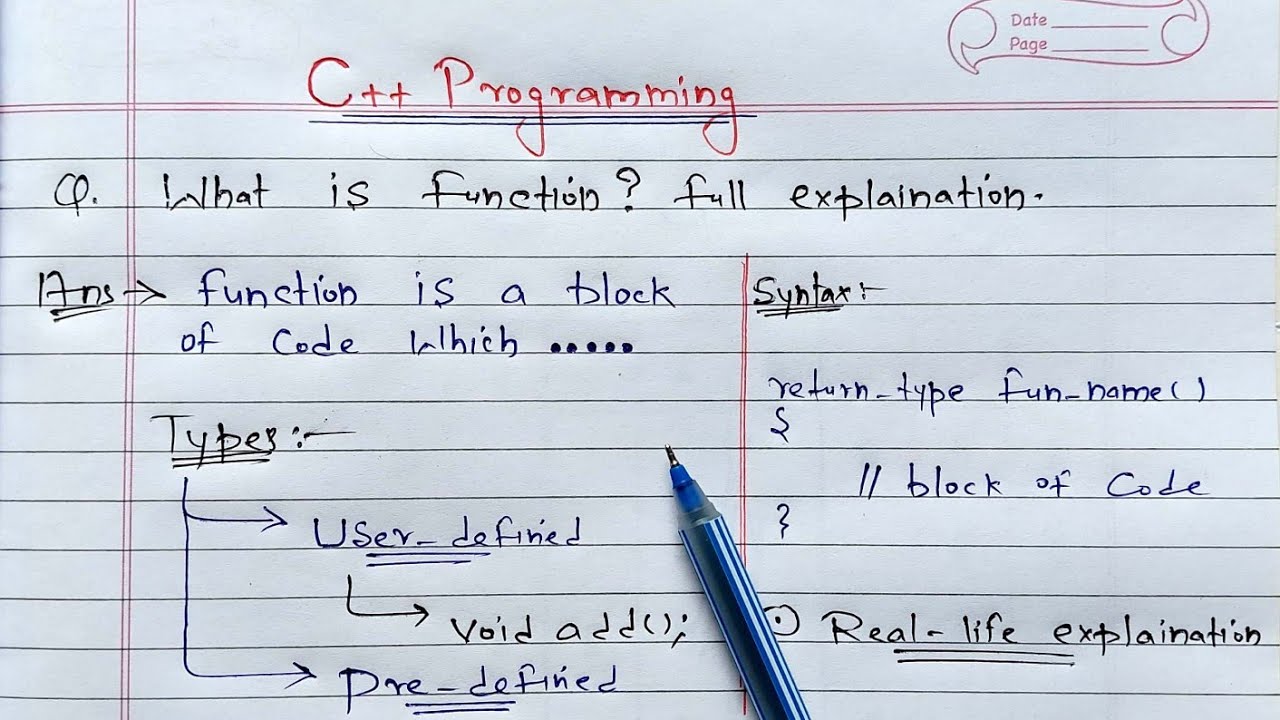 Date
Page
C++ Programming
Q. What is function? full explaination.
Ans → function is a block
of code which .....
Types:-
User-defined
void add();
Pre-defined
Syntax:-
return_type fun_name()
{
// block of code
}
Real-life explaination